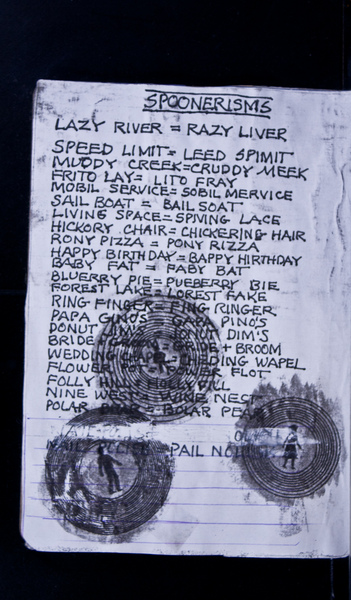 SPOONERISMS
LAZY RIVER = RAZY LIVER
SPEED LIMIT = LEED SPIMIT
MUDDY CREEK = CRUDDY MEEK
FRITO LAY = LITO FRAY
MOBIL SERVICE = SOBIL MERVICE
SAIL BOAT = BAIL SOAT
LIVING SPACE = SPIVING LACE
HICKORY CHAIR = CHICKERING HAIR
RONY PIZZA = PONY RIZZA
HAPPY BIRTHDAY = BAPPY HIRTHDAY
BABY FAT = FABY BAT
BLUERRY PIE = PUEBERRY BIE
FOREST LAKE = LOREST FAKE
RING FINGER = FING RINGER
PAPA GINO'S = GAPA PINO'S
DONUT DIM'S
BRIDE + BROOM
WEDDING CHAPEL = CHEDDING WAPEL
FLOWER POT = POWER FLOT
FOLLY HILL BILL
NINE WEST = WINE NEST
POLAR BEAR = BOLAR PEAR
NAIL = PAIL